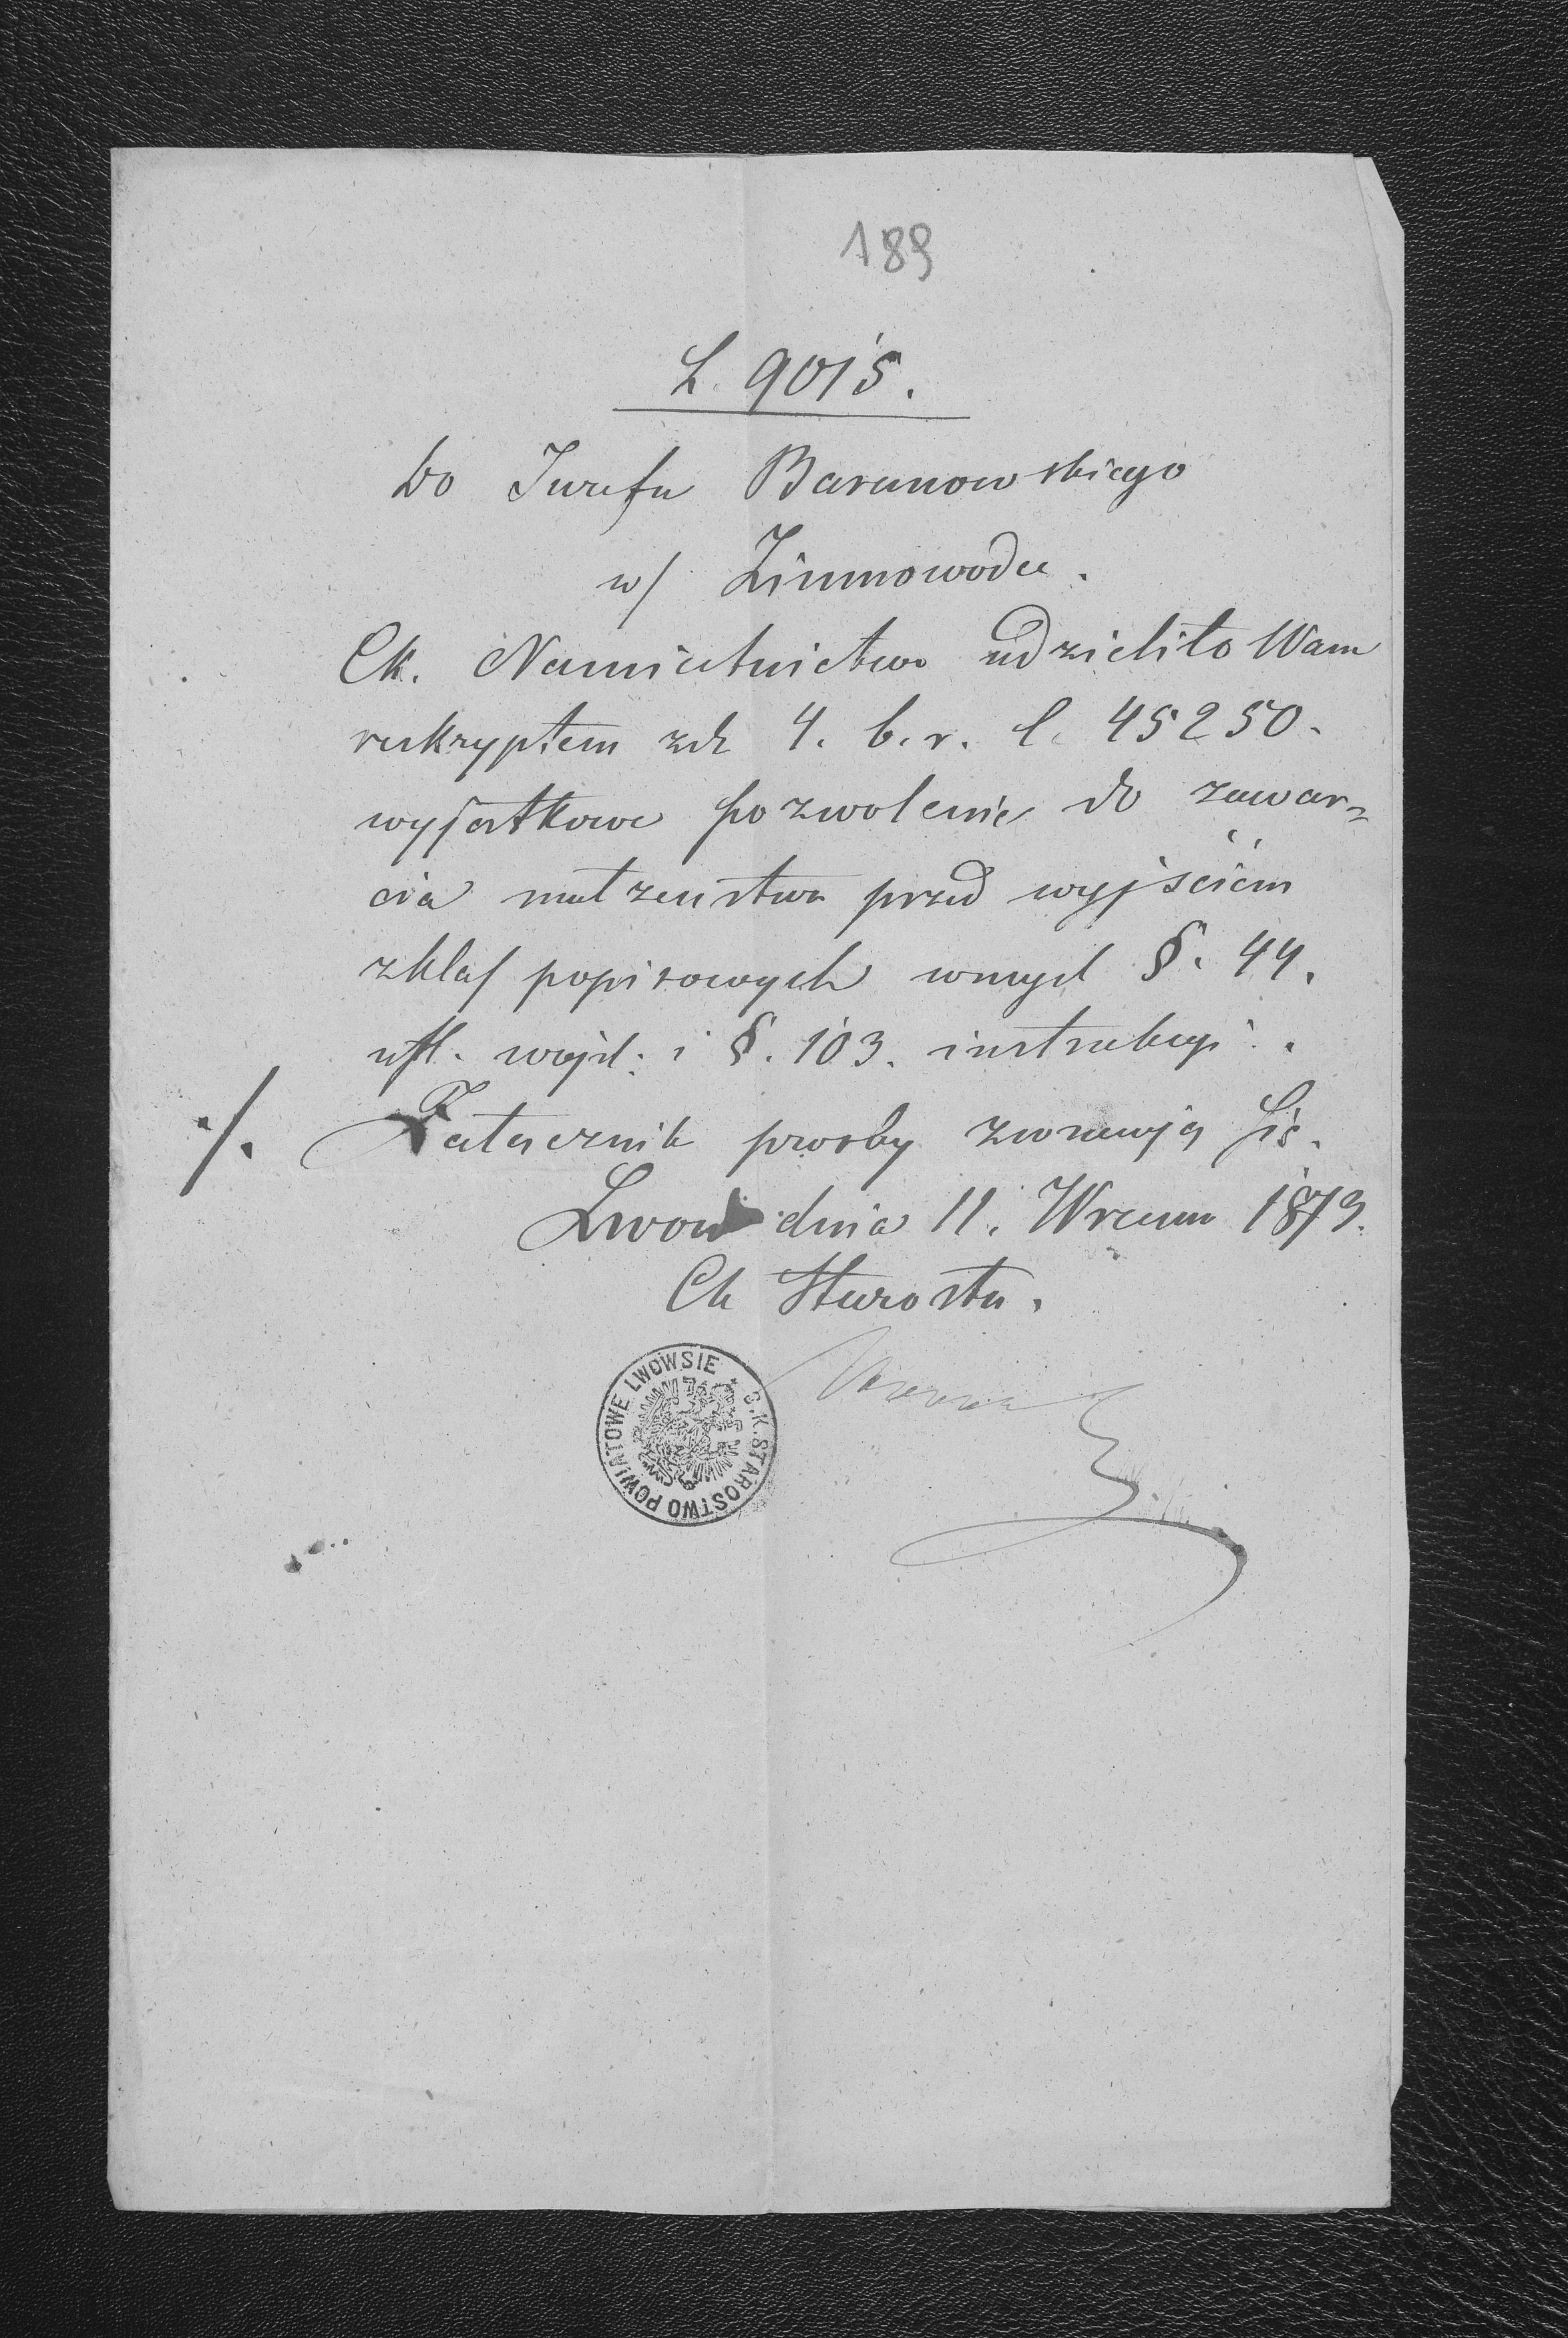 189
L. 9015.
Do Jozefa Baranowskiego
w/ Zimnowodce.
Ck. Namiestnictwo udzieliło Wam
reskryptem zdt 4. b. r. l. 45250.
wyjątkowe pozwolenie do zawar-
cia małzenstwa przed wyjściem
z klas popisowych w mysl §. 44.
ust. wojsk: i §. 103. instrukcyi.
./. Załącznik prosby zwracają sie.
Lwow dnia 11. Wrzesn 1873.
Ck Starosta.
C. K. STAROSTWO POWIATOWE LWOWSIE